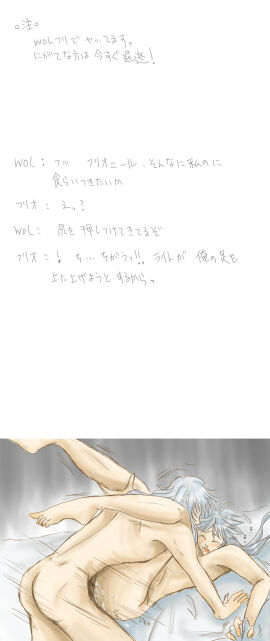 。注。
WOLフリでヤッてます。
にがてな方は今すぐ退避!
WOL: フッ フリオニール、そんなに私のに
食らいつきたいか
フリオ: えっ?
WOL: 尻を押しつけてきてるぞ
フリオ: ! ち…ちがうっ!! ライトが 俺の足を
上に上げようと するからっ